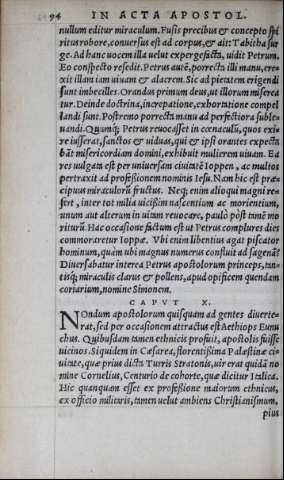 94 IN ACTA APOSTOL.
nullum editur miraculum. Fusis precibus & concepto spi
ritus robore, conuersus est ad corpus, & ait: Tabitha sur
ge. Ad hanc uocem illa uelut expergefacta, uidit Petrum.
Eo conspecto resedit. Petrus autē, porrecta illi manu, ere-
xit illam iam uiuam & alacrem. Sic ad pietatem erigendi
sunt imbecilles. Orandus primum deus, ut illorum miserea
tur. Deinde doctrina, increpatione, exhortatione compel
landi sunt. Postremo porrecta manu ad perfectiora suble-
uandi. Quumq; Petrus reuocasset in cœnaculū, quos exi-
re iusserat, sanctos & uiduas, qui & ipsi orantes expecta
bāt misericordiam domini, exhibuit mulierem uiuam. Ea
res uulgata est per uniuersam ciuitatē Ioppen, ac multos
pertraxit ad professionem nominis Iesu. Nam hic est præ-
cipuus miraculorū fructus. Neq; enim alioqui magni re-
fert, inter tot milia uicißim nascentium ac morientium,
unum aut alterum in uitam reuocare, paulo pòst tamē mo
riturū. Hac occasione factum est ut Petrus complures dies
commoraretur Ioppæ. Vbi enim libentius agat piscator
hominum, quàm ubi magnus numerus confluit ad sagenā?
Diuersabatur interea Petrus apostolorum princeps, tan-
tisq; miraculis clarus & pollens, apud opificem quendam
coriarium, nomine Simonem.
CAPVT X.
NOndum apostolorum quisquam ad gentes diuerte-
rat, sed per occasionem attractus est Aethiops Eunu
chus. Quibusdam tamen ethnicis profuit, apostolis fuisse
uicinos. Siquidem in Cæsarea, florentißima Palæstinæ ci-
uitate, quæ prius dicta Turris Stratonis, uir erat quidā no
mine Cornelius, Centurio de cohorte, quæ dicitur Italica.
Hic quanquam esset ex professione maiorum ethnicus,
ex officio militaris, tamen uelut ambiens Christianismum,
pius